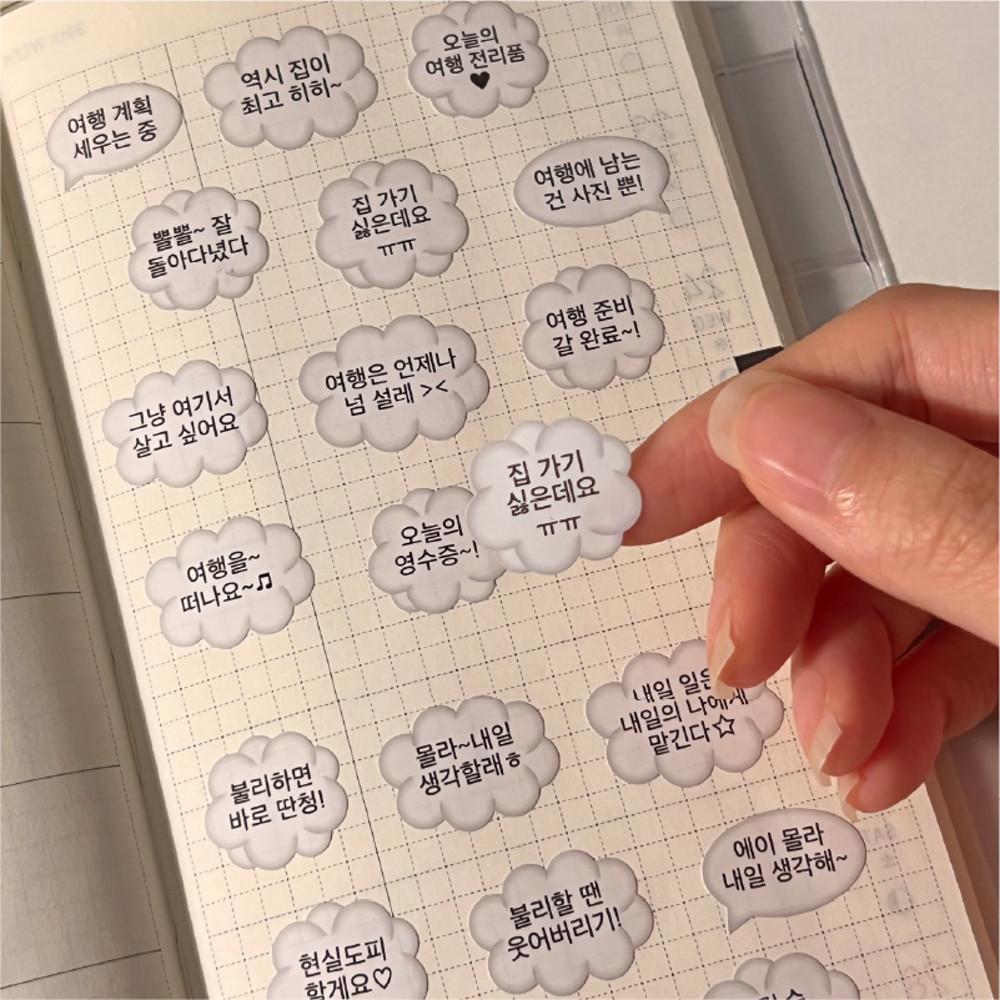 여행 계획
세우는 중
역시 집이
최고 히히~
오늘의
여행 전리품
♥
뽈뽈~ 잘
돌아다녔다
집 가기
싫은데요
ㅠㅠ
여행에 남는
건 사진 뿐!
그냥 여기서
살고 싶어요
여행은 언제나
넘 설레 ><
여행 준비
갈 완료~!
집 가기
싫은데요
ㅠㅠ
여행을~
떠나요~♫
오늘의
영수증~!
불리하면
바로 딴청!
몰라~내일
생각할래ㅎ
내일 일은
내일의 나에게
맡긴다☆
에이 몰라
내일 생각해~
현실도피
할게요♡
불리할 땐
웃어버리기!
WED